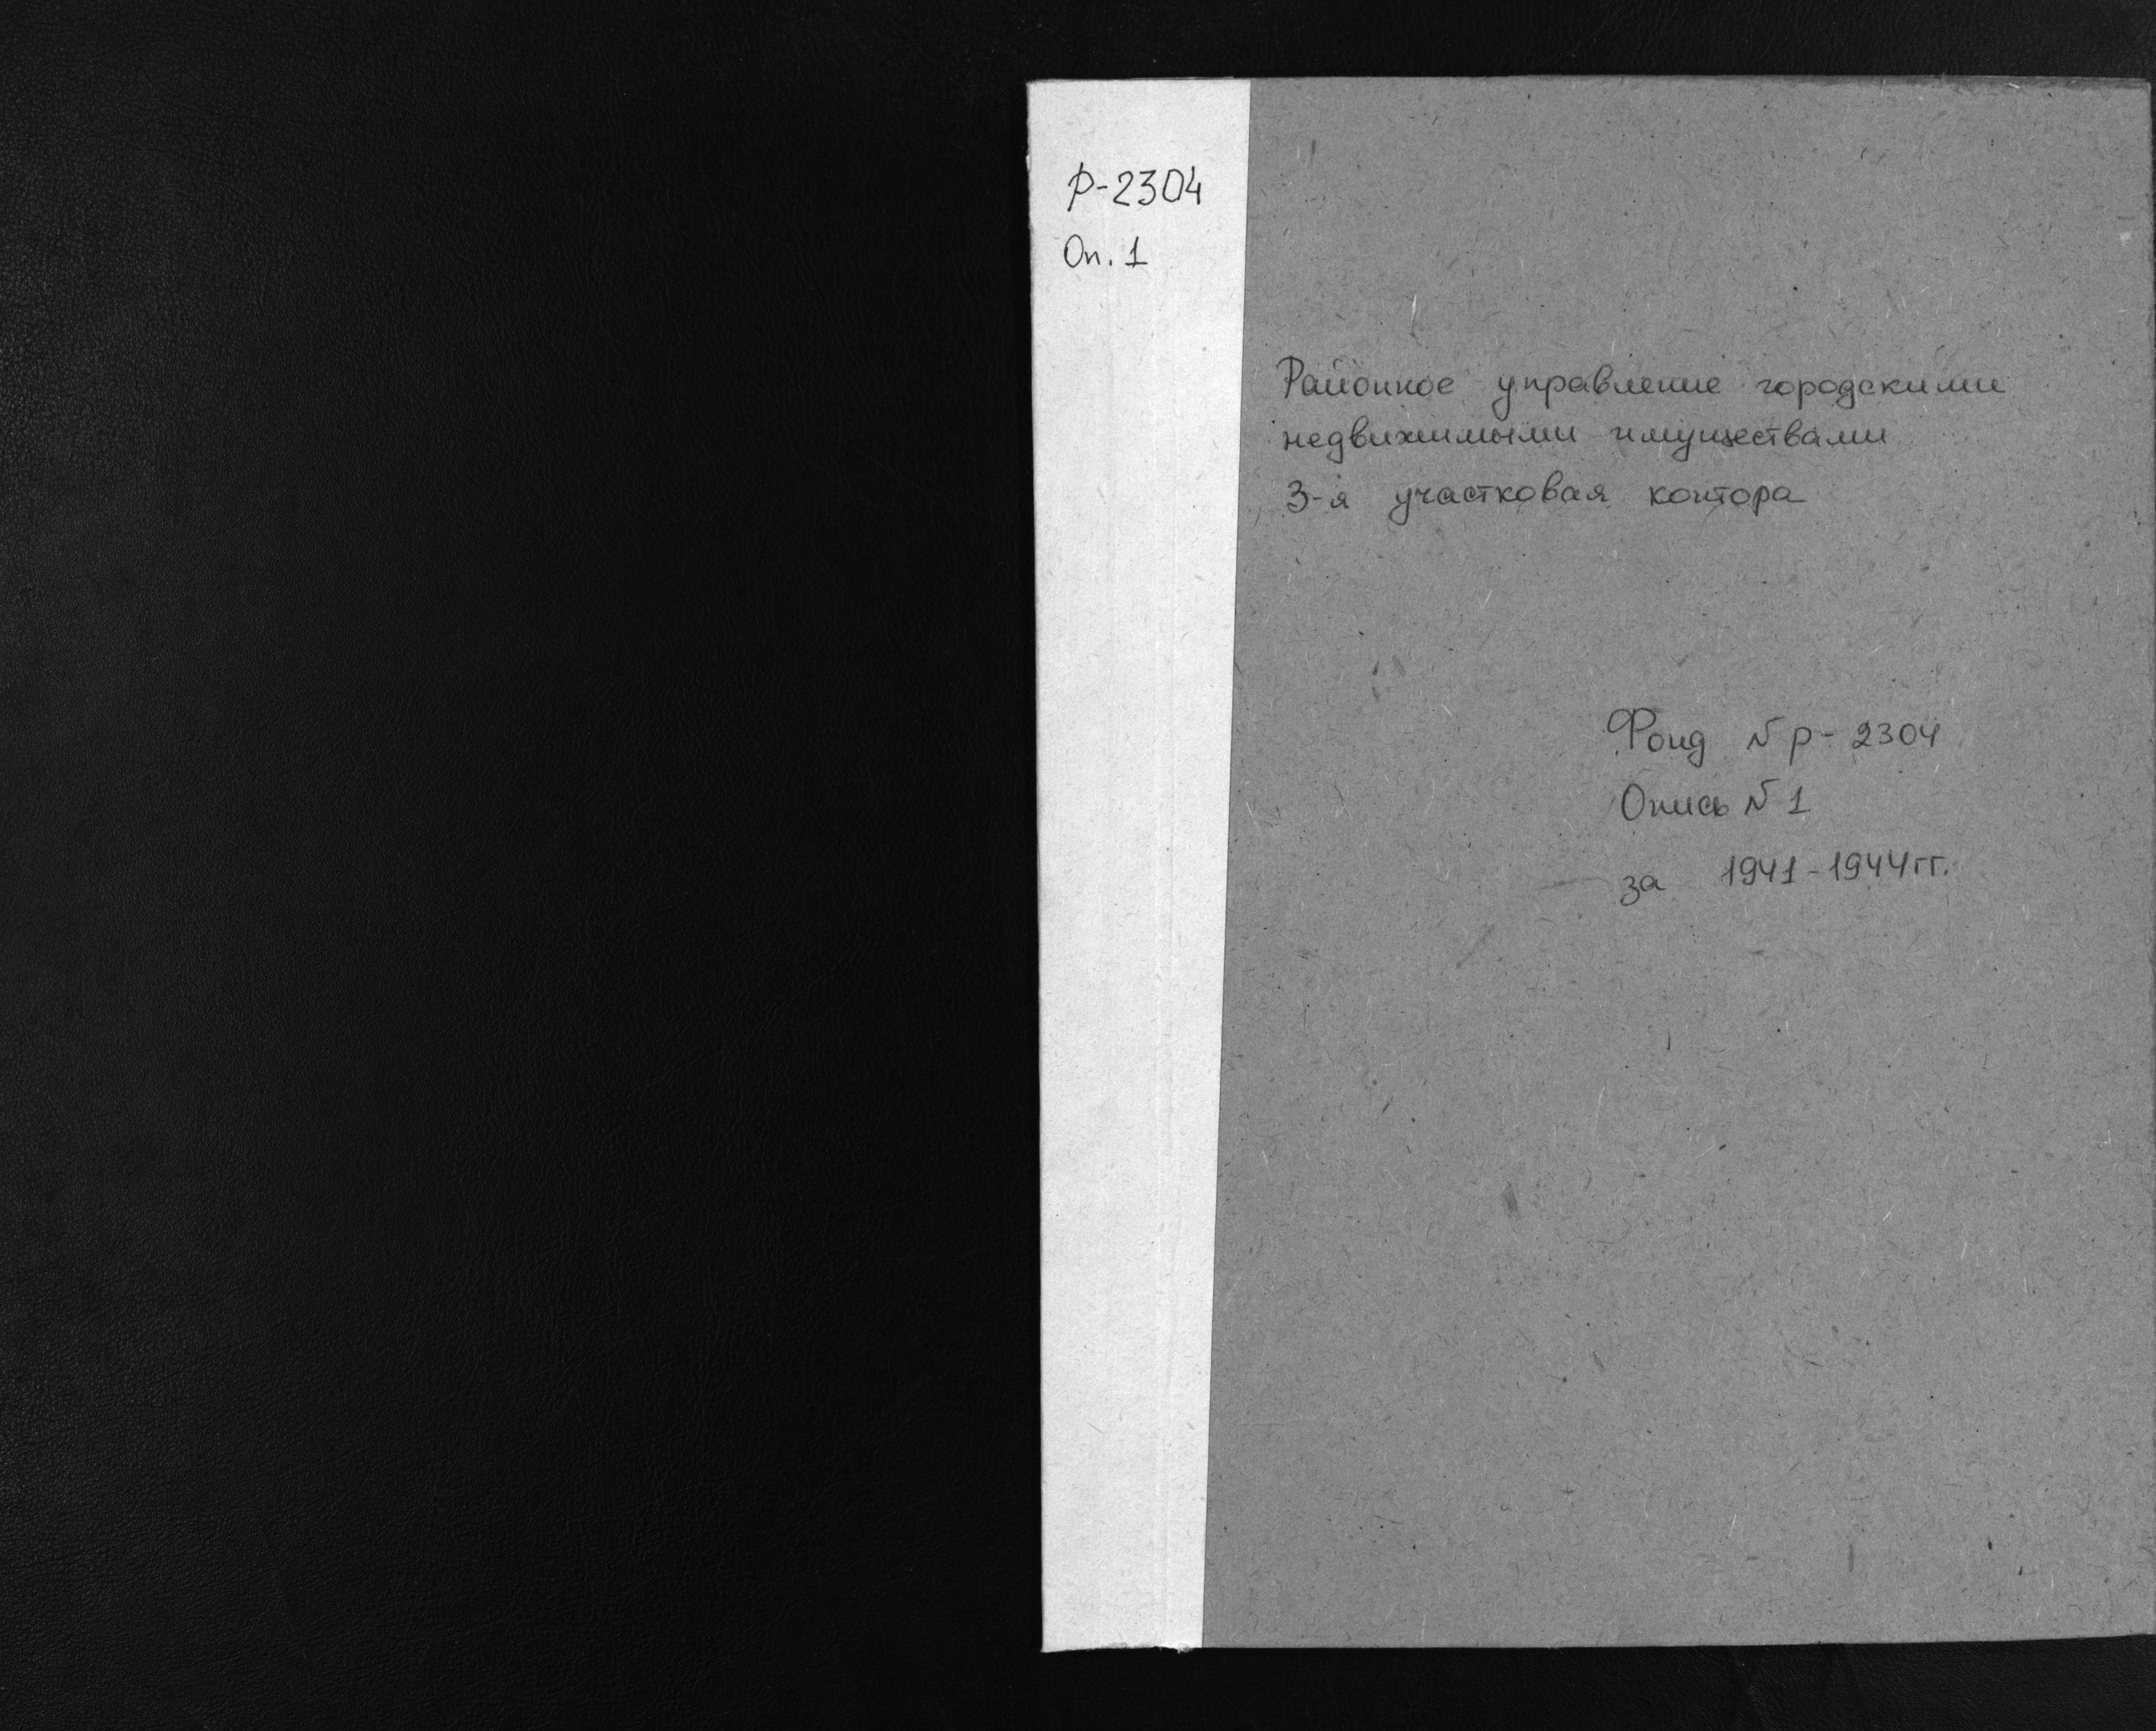 Р-2304
Оп. 1
Районное управление городскими
недвижимыми имуществами
3-я участковая контора
Фонд № р-2304
Опись № 1
за 1941-1944 гг.